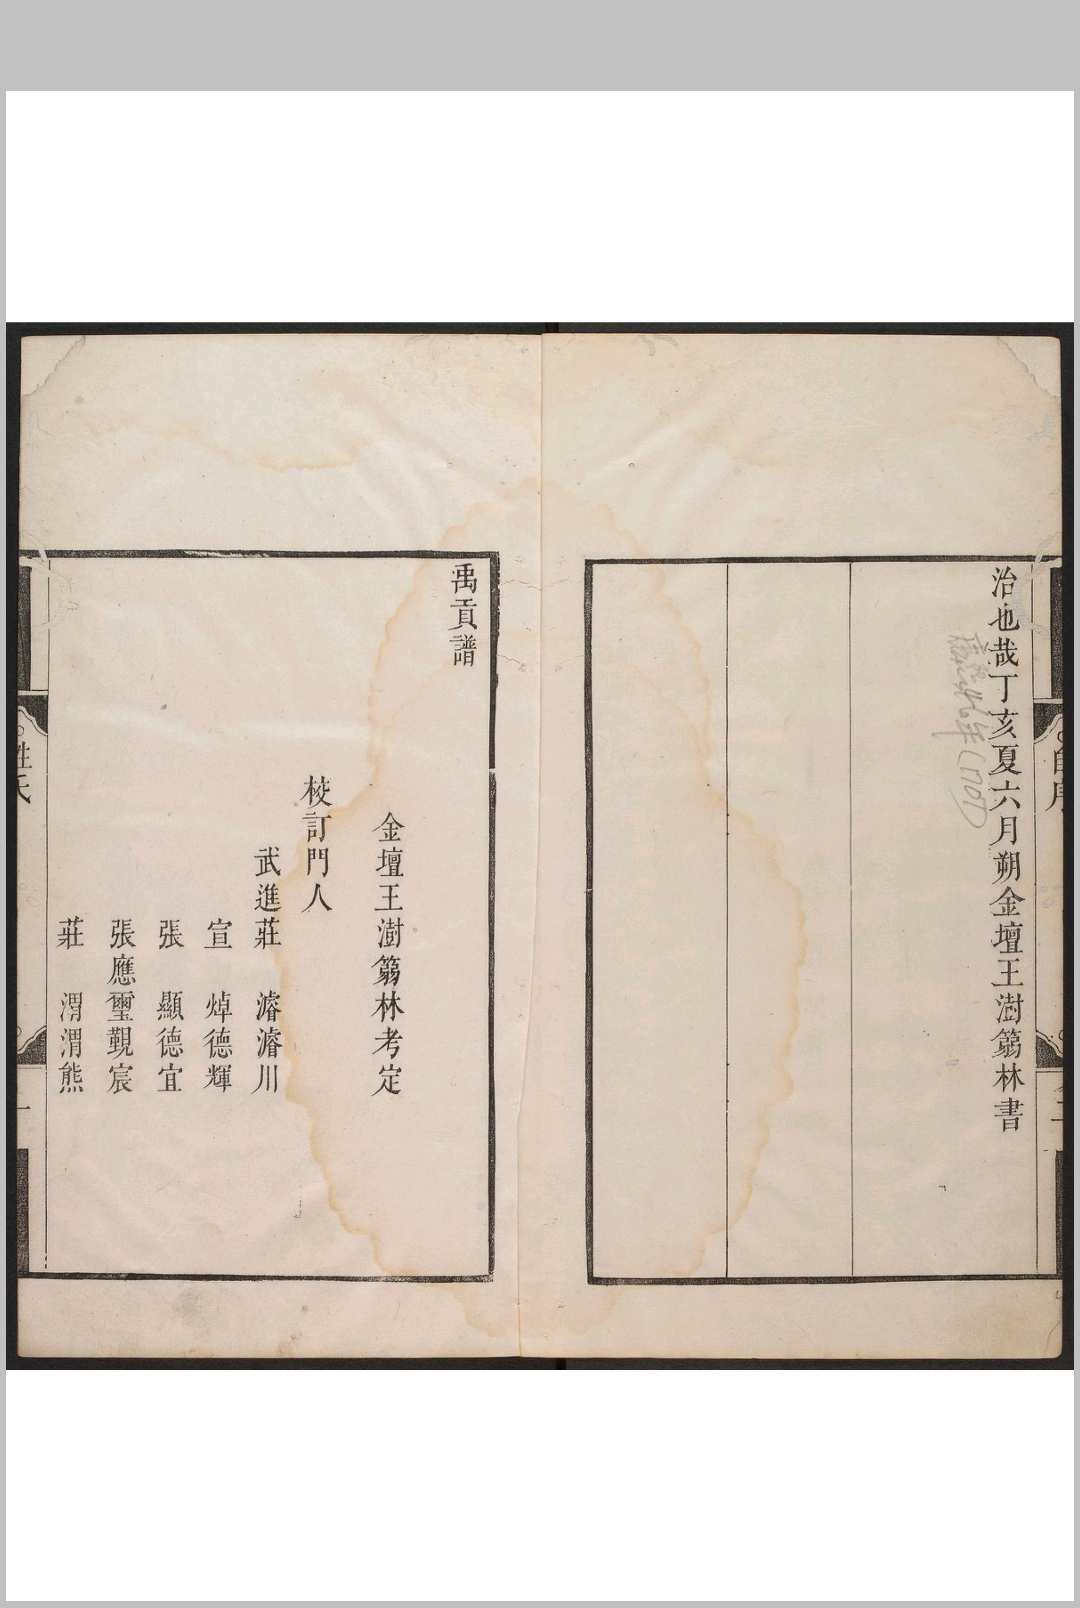 自序
二
治也哉丁亥夏六月朔金壇王澍篛林書
康熙46年(1707)
禹貢譜
金壇王澍篛林考定
校訂門人
武進莊 濬濬川
宣 焯德輝
張 顯德宜
張應璽覲宸
莊 渭渭熊
姓氏
一